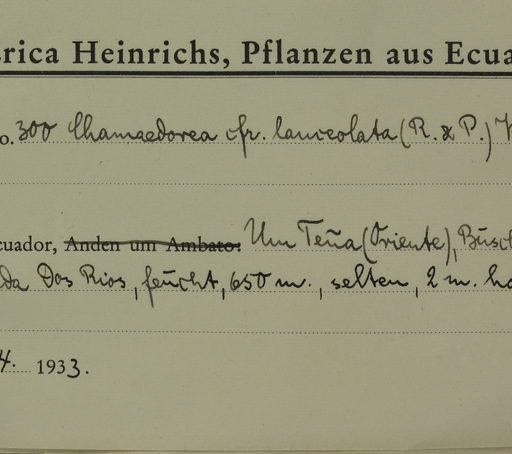 rica Heinrichs, Pflanzen aus Ecua
o. 300 Chamaedorea cfr. lanceolata (R. & P.)
cuador, Anden um Ambato: Um Tena (Oriente), Büsc
da Dos Rios, feucht, 650 m., selten, 2 m. ho
4. 1933.